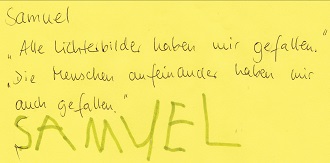 Samuel
„Alle Lichterbilder haben mir gefallen."
„Die Menschen aufeinander haben mir
auch gefallen."
SAMUEL